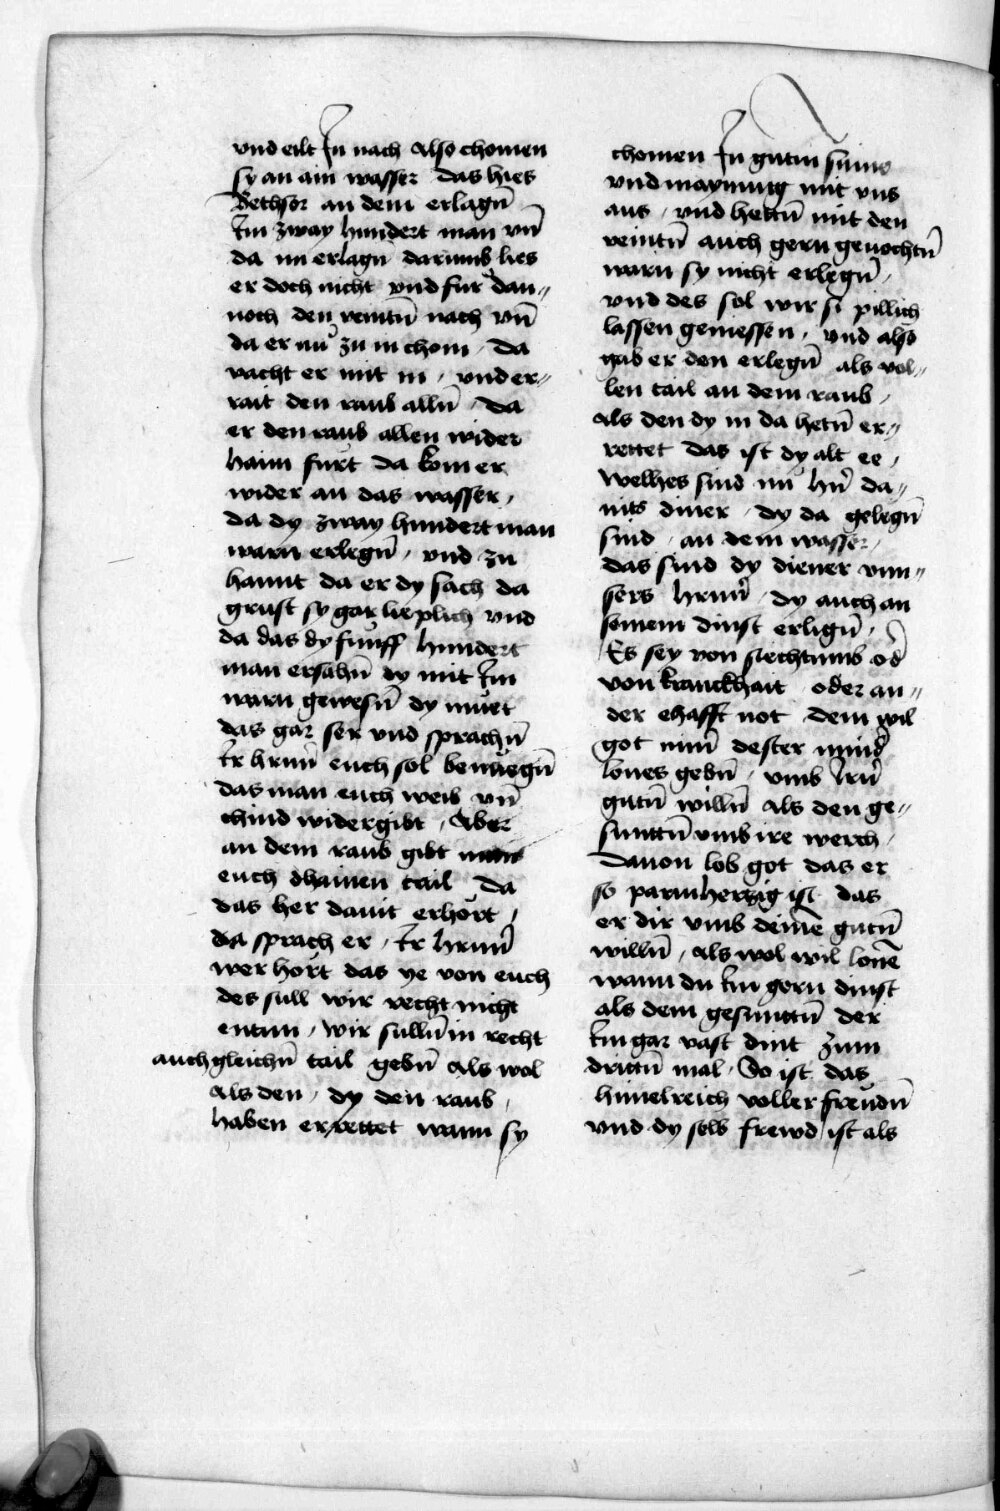 vnd eilt In nach Also chomen
sy an ain wasser das hies
Bethsor an dem erlagn̄
Im zway hundert man vn̄
da im erlagn darumb lies
er doch nicht vnd fur dan„
noch den veintn̄ nach vn̄
da er nu zu in chom Da
vacht er mit in vnd er„
rait den raub alln̄ Da
er den raub allen wider
haim furt da kom er
wider an das wasser
da dy zway hundert man
warn erlegn̄ vnd zu
hannt da er dy sach da
grust sy gar lieplich vnd
da das dy funff hundert
man ersahn̄ dy mit Im
warn gewesn̄ dy muet
das gar ser vnd sprachn̄
Ir hrnn̄ euch sol benuegn̄
das man euch weib vn̄
chind widergibt Aber
an dem raub gibt man
euch dhainen tail Da
das her dauit erhort
da sprach er Ir hrnn̄
wer hort das ye von euch
des sull wir recht nicht
entun wir sulln̄ in recht
auch gleichn̄ tail gebn̄ als wol
als den dy den raub
haben errettet wann sy
chomen In gutm synne
vnd maynung mit vns
aus vnd hettn̄ mit den
veintn̄ auch gern geuochtn̄
warn sy nicht erlegn̄
vnd des sol wir si pillich
lassen geniessen vnd also
gab er den erlegn̄ als vol„
len tail an dem raub
als den dy in da hetn̄ er„
rettet das ist dy alt ee
welhes sind nu hn̄ da„
uits diner dy da gelegn̄
sind an dem wasser
das sind dy diener vnn„
sers hrnn̄ dy auch an
seinem dinst erlign̄
Es sey von siechtumb od̄
von kranckhait oder an„
der ehafft not dem wil
got nim̄ dester mind̄
lones gebn̄ vmb irn̄
gutn̄ willn̄ als den ge„
sunttn̄ vmb ire werch
Dauon lob got das er
so parmhertzig ist das
er dir vmb deinē gutn̄
willn̄ als wol wil lonē
wann du Im gern dinst
als dem gesunttn̄ der
Im gar vast dint Zum
drittn̄ mal So ist das
himelreich voller freudn̄
vnd dy selb frewd ist als